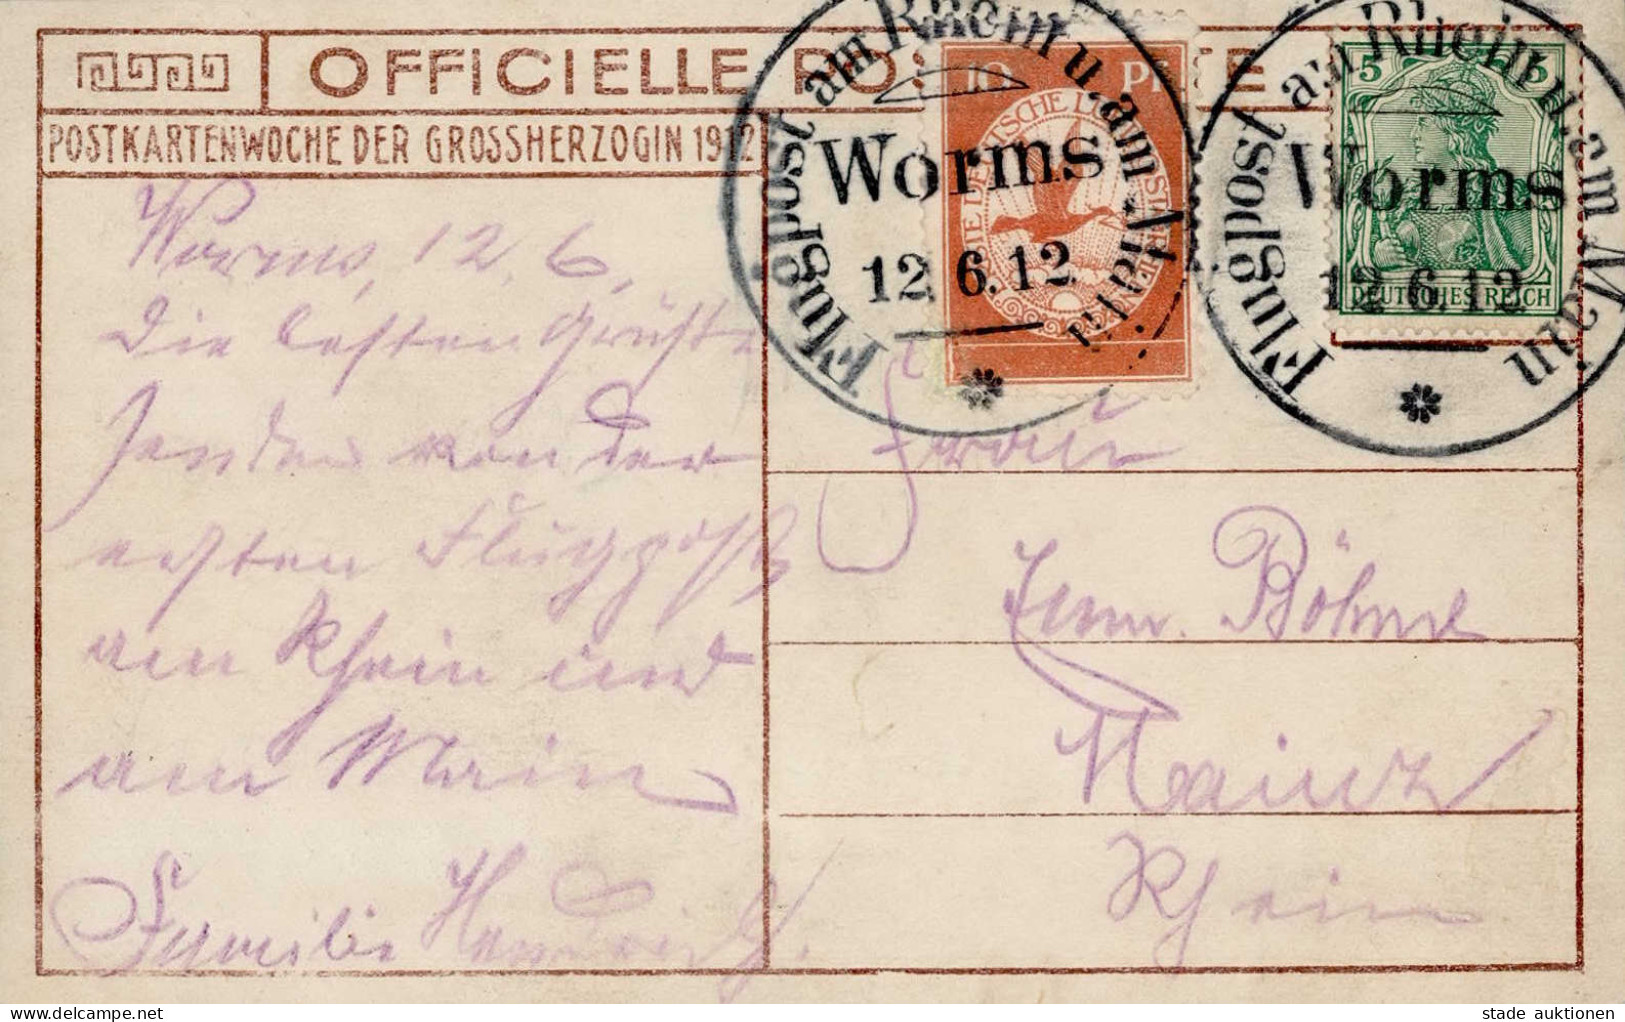 OFFICIELLE POSTKARTE
POSTKARTENWOCHE DER GROSSHERZOGIN 1912
10 Pf
Flugpost am Rhein u. am Main
Worms
12. 6. 12
5 5
DEUTSCHES REICH
Flugpost am Rhein u. am Main
Worms
12. 6. 12
Worms, 12. 6.
Die besten Grüße
senden von der
ersten Flugpost
am Rhein und
am Main
Familie
Frau
Böhme
Mainz
Rhein
delcampe.net
stade auktionen